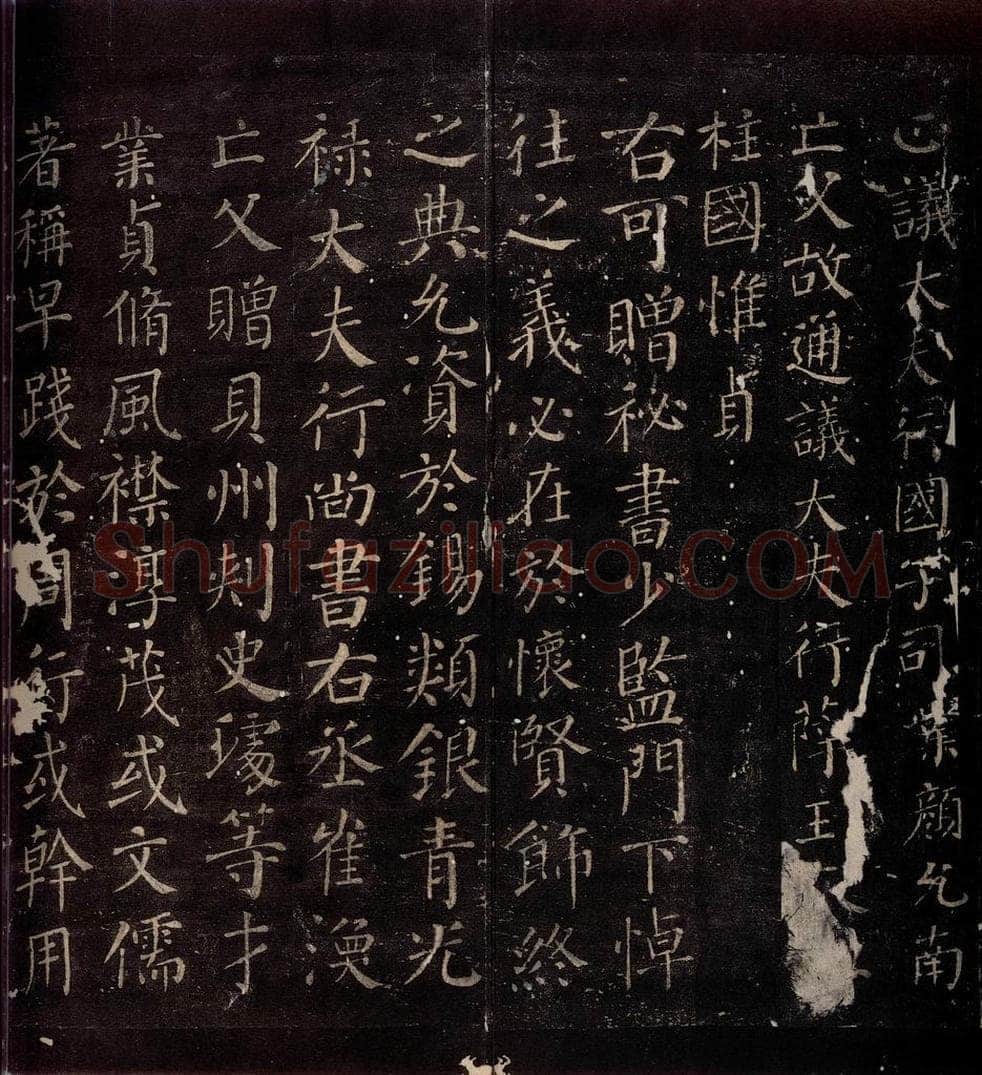 正議大夫行國子司業顏允南
亡父故通議大夫行薛王
柱國惟貞
右可贈祕書少監門下悼
往之義必在於懷賢飾終
之典允資於錫類銀青光
祿大夫行尚書右丞崔渙
亡父贈貝州刺史璩等才
業貞脩風襟淳茂或文儒
著稱早踐於周行或幹用
Shufaziliao.COM